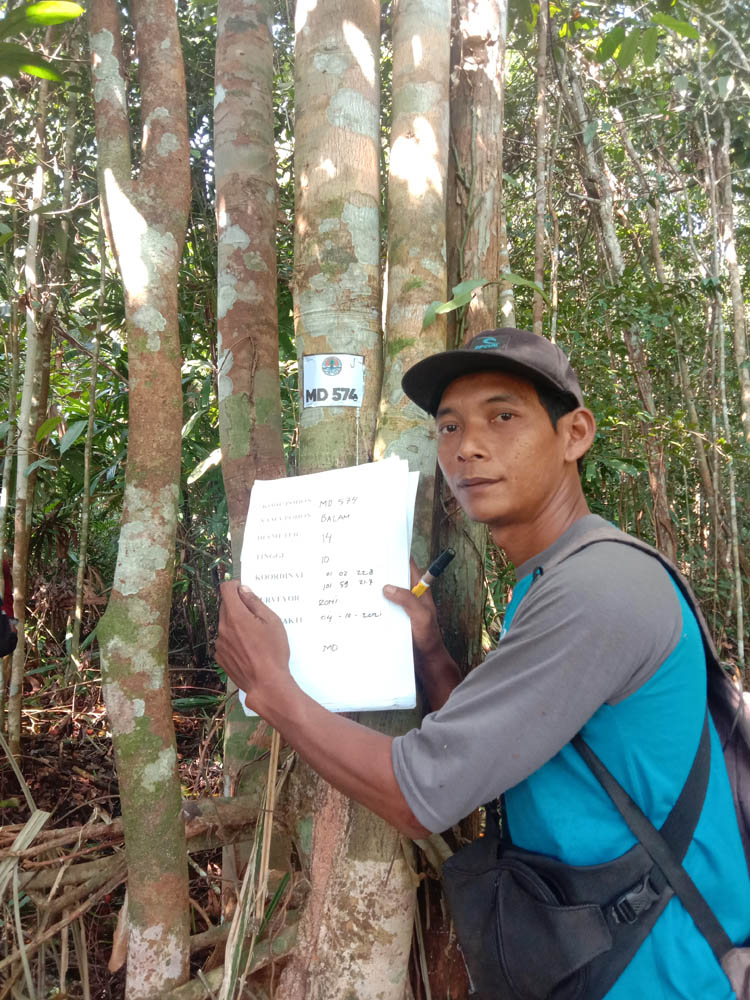 MD 574
KODE POHON MD 574
NAMA POHON BALAM
DIAMETER 14
TINGGI 10
KOORDINAT 01 02 22.8
101 59 21.7
SURVEYOR ROMI
WAKTU 04 - 10 - 2021
MD